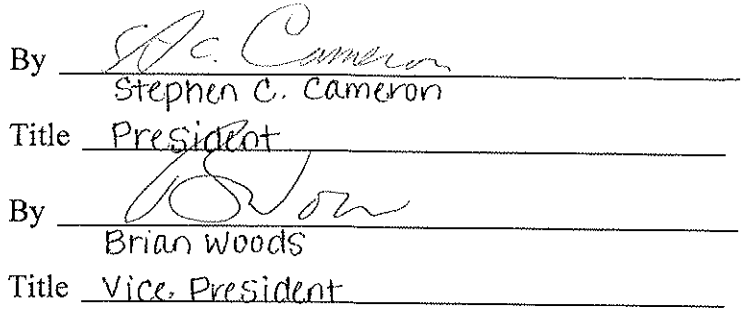 By St C. Cameron
Stephen C. Cameron
Title President
By
Brian Woods
Title Vice. President